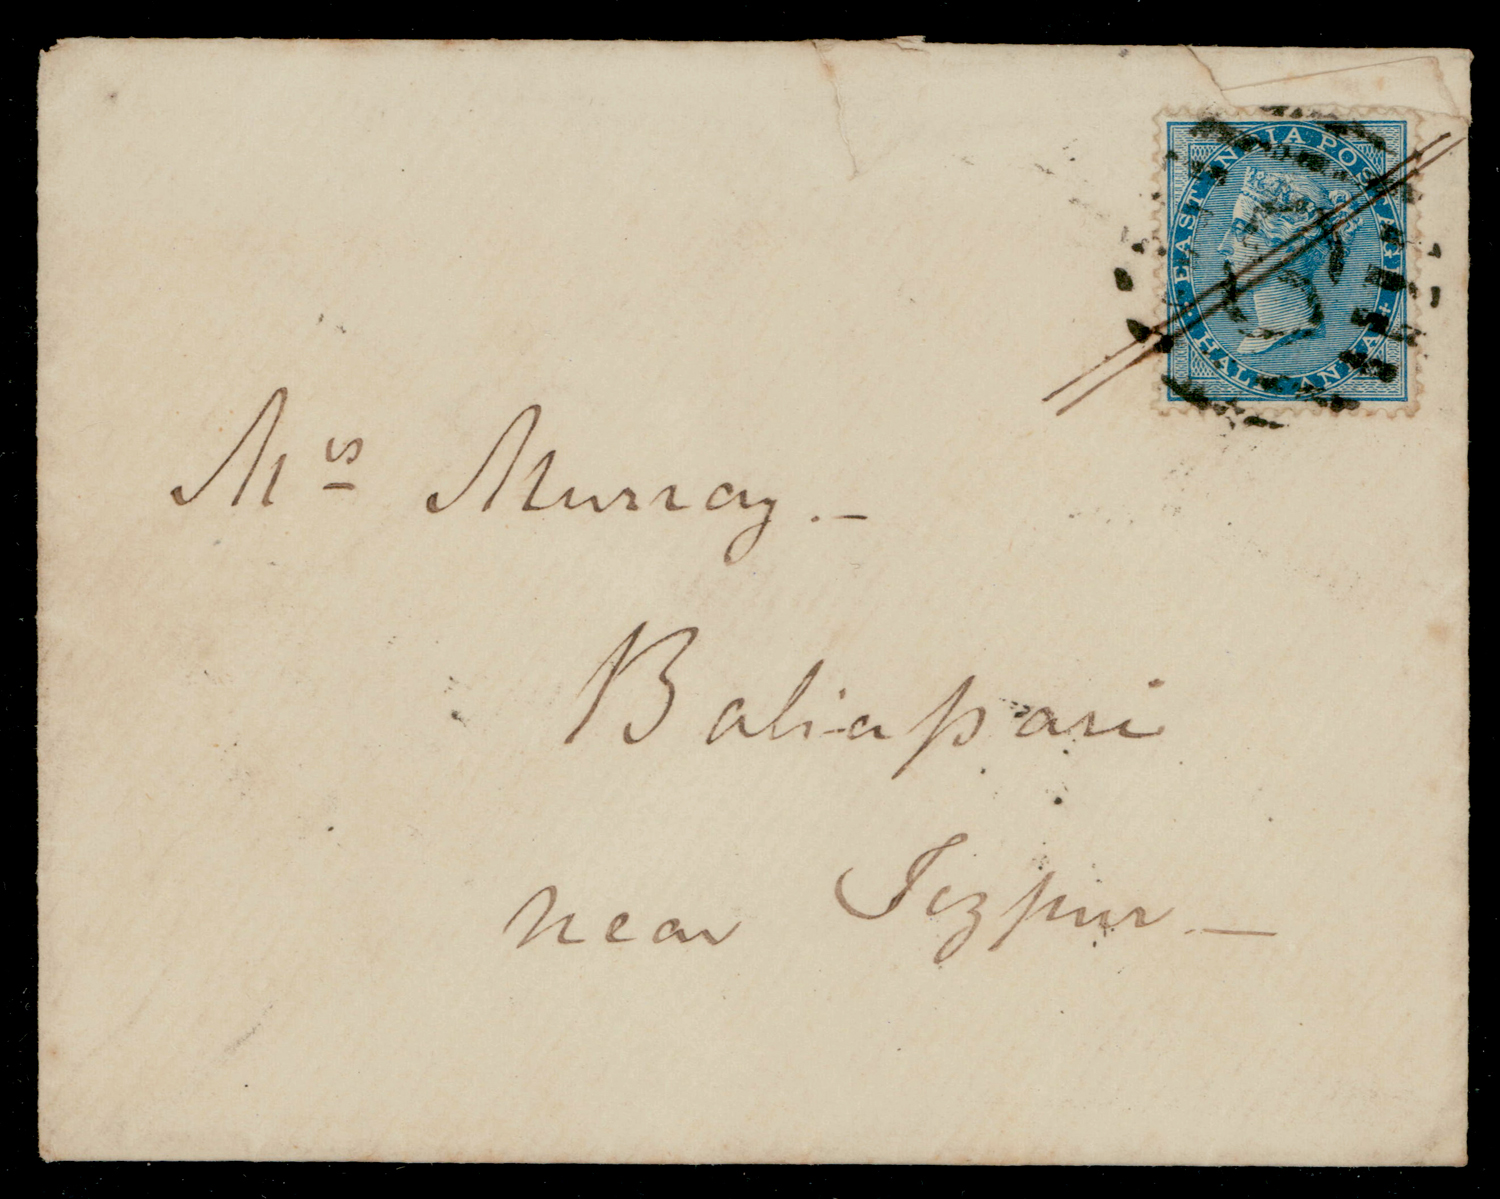 EAST INDIA POSTAGE
HALF ANNA
Mrs Murray. —
Baliapari
near Tezpur. —